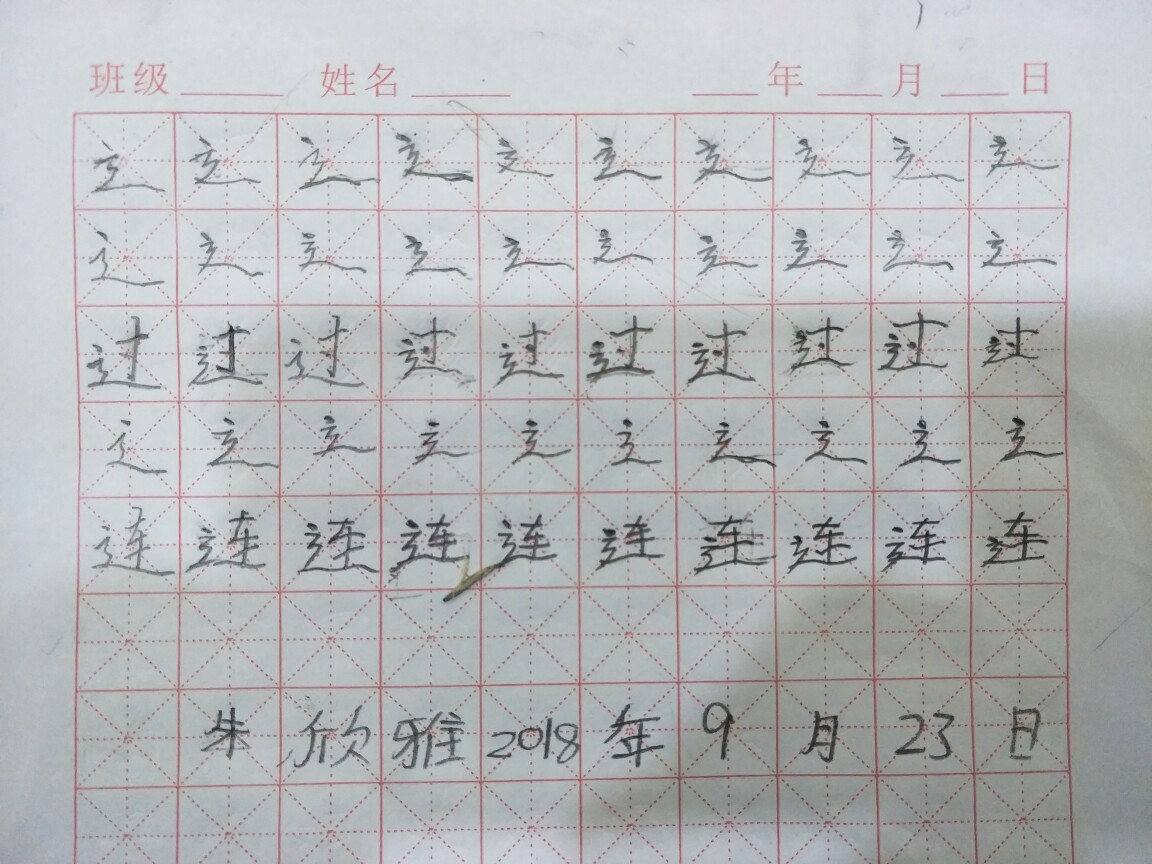 班级 姓名 年 月 日
辶 辶 辶 辶 辶 辶 辶 辶 辶 辶
辶 辶 辶 辶 辶 辶 辶 辶 辶 辶
过 过 过 过 过 过 过 过 过 过
辶 辶 辶 辶 辶 辶 辶 辶 辶 辶
连 连 连 连 连 连 连 连 连 连
朱 欣 雅 2018 年 9 月 23 日